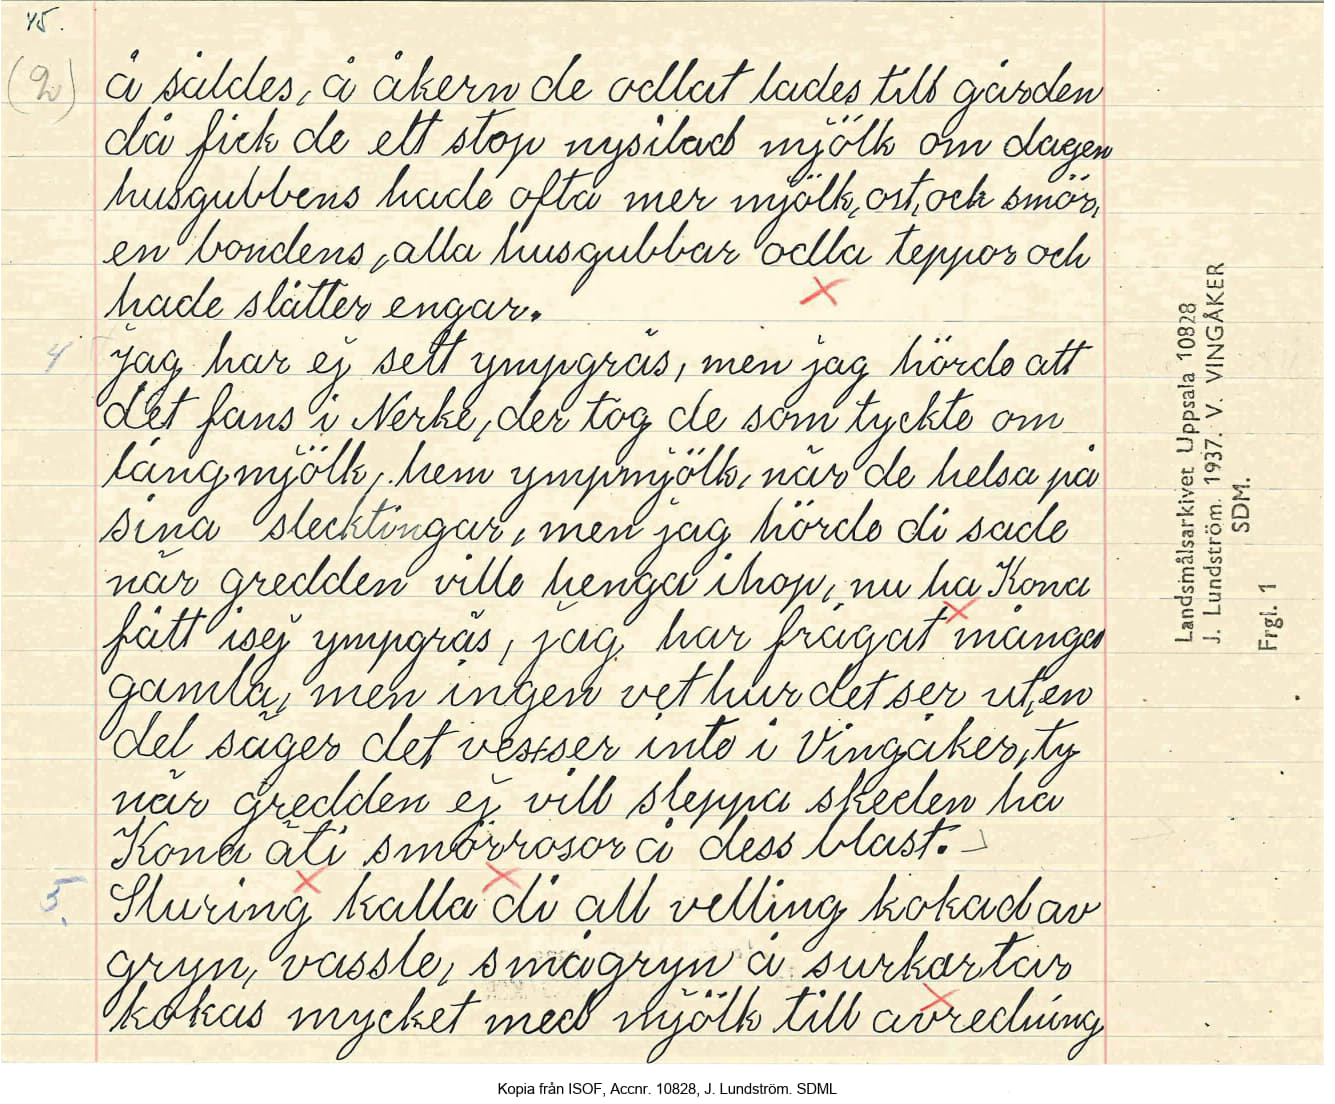 45.
(2)
å såldes, å åkern de odlat lades till gården
då fick de ett stop nysilad mjölk om dagen
husgubbens hade ofta mer mjölk, ost, och smör,
en bondens, alla husgubbar odla teppor och
hade slåtter engar.
4
jag har ej sett ympgräs, men jag hörde att
det fans i Nerke, der tog de som tyckte om
långmjölk, hem ympmjölk, när de helsa på
sina slecktingar, men jag hörde di sade
när gredden ville henga ihop, nu ha Kona
fått isej ympgräs, jag har frågat många
gamla, men ingen vet hur det ser ut, en
del säger det vexser inte i Vingåker, ty
när gredden ej vill sleppa skeden ha
Kona äti smörrosor å dess blast.
5.
Sluring kalla di all velling kokad av
gryn, vassle, smågryn å surkartar
kokas mycket med mjölk till avredning
Landsmålsarkivet Uppsala 10828
J. Lundström. 1937. V. VINGÅKER
SDM.
Frgl. 1
Kopia från ISOF, Accnr. 10828, J. Lundström. SDML